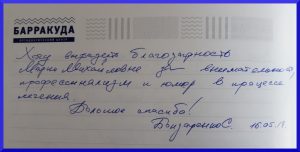 БАРРАКУДА
Хочу выразить благодарность
Марие Михайловне за внимательность,
профессионализм и юмор в процессе
лечения.
Большое спасибо!
Бондаренко С. 16.05.17.